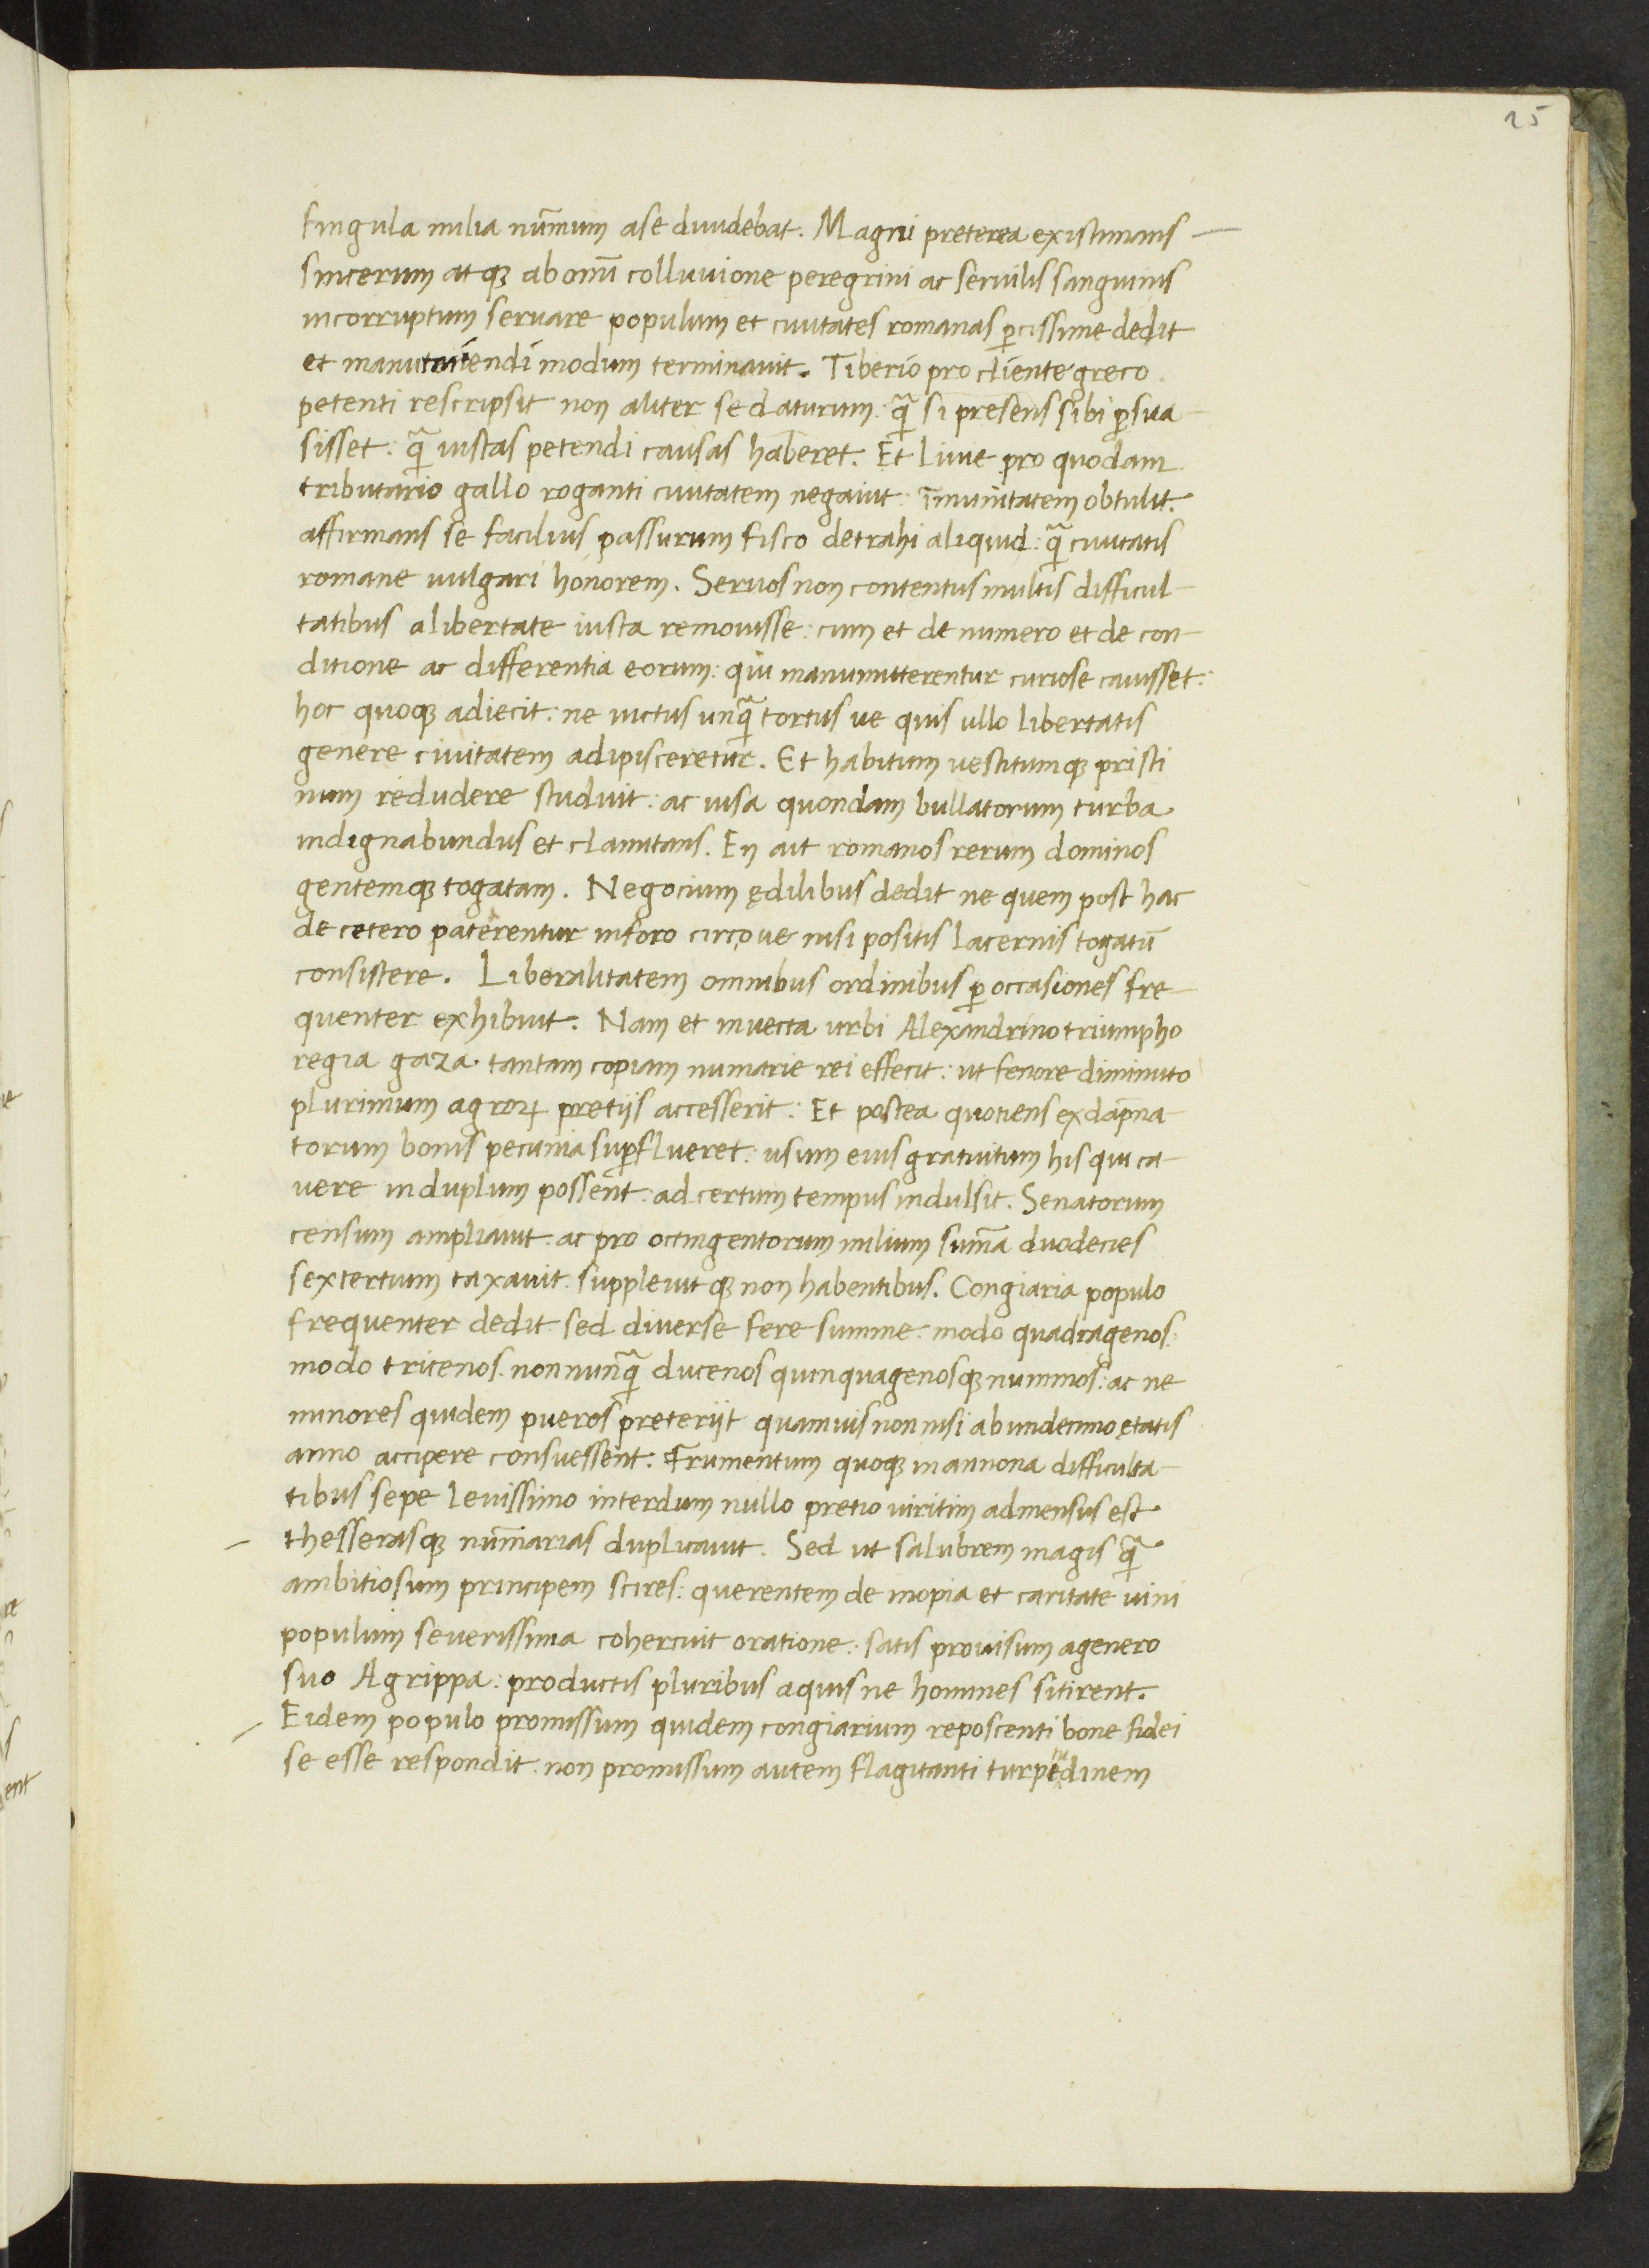 25
singula milia nūmum a se diuidebat. Magni preterea existimans
sincerum atqȝ ab omī colluuione peregrini ac seruilis sanguinis
incorruptum seruare populum et ciuitates romanas ꝑcissime dedit
et manumitendi modum terminauit. Tiberio pro cliente greco
petenti rescripsit non aliter se daturum: q̄ si presens sibi ꝑsua
sisset: q̄ iustas petendi causas haberet. Et Liuie pro quodam
tributario gallo roganti ciuitatem negauit: īmunitatem obtulit.
affirmans se facilius passurum fisco detrahi aliquid: q̄ ciuitatis
romane uulgari honorem. Seruos non contentus multis difficul-
tatibus a libertate iusta remouisse: cum et de numero et de con-
ditione ac differentia eorum: qui manumitterentur curiose cauisset:
hoc quoqȝ adiecit: ne uictus unq̄ tortus ue quis ullo libertatis
genere ciuitatem adipisceretur. Et habitum uestitumqȝ pristi
num redudere studuit: ac uisa quondam bullatorum turba
indignabundus et clamitans. En ait romanos rerum dominos
gentemqȝ togatam. Negocium ędilibus dedit ne quem post hac
de cetero paterentur in foro circoue nisi positis lacernis togatū
consistere. Liberalitatem omnibus ordinibus ꝑ occasiones fre-
quenter exhibuit. Nam et inuecta urbi Alexandrino triumpho
regia gaza tantam copiam numarie rei effecit: ut fenore diminuto
plurimum agroꝝ pretijs accesserit: Et postea quotiens ex dāpna-
torum bonis pecunia suꝑflueret: usum eius gratuitum his qui ca-
uere in duplum possent: ad certum tempus indulsit. Senatorum
censum ampliauit: ac pro octingentorum milium sum̄a duodecies
sextertium taxauit: suppleuitqȝ non habentibus. Congiaria populo
frequenter dedit: sed diuerse fere summe: modo quadragenos:
modo tricenos: nonnunq̄ ducenos quinquagenosqȝ nummos: ac ne
minores quidem pueros preterijt quamuis non nisi ab undecimo ętatis
anno accipere consuessent: Frumentum quoqȝ in annona difficulta-
tibus sepe leuissimo interdum nullo pretio uiritim admensus est
thesserasqȝ nūmarias duplicauit. Sed ut salubrem magis q̄
ambitiosum principem scires: querentem de inopia et caritate uini
populum seuerissima cohercuit oratione: satis prouisum a genero
suo Agrippa: productis pluribus aquis ne homines sitirent.
Eidem populo promissum quidem congiarium reposcenti bone fidei
se esse respondit: non promissum autem flagitanti turpitudinem